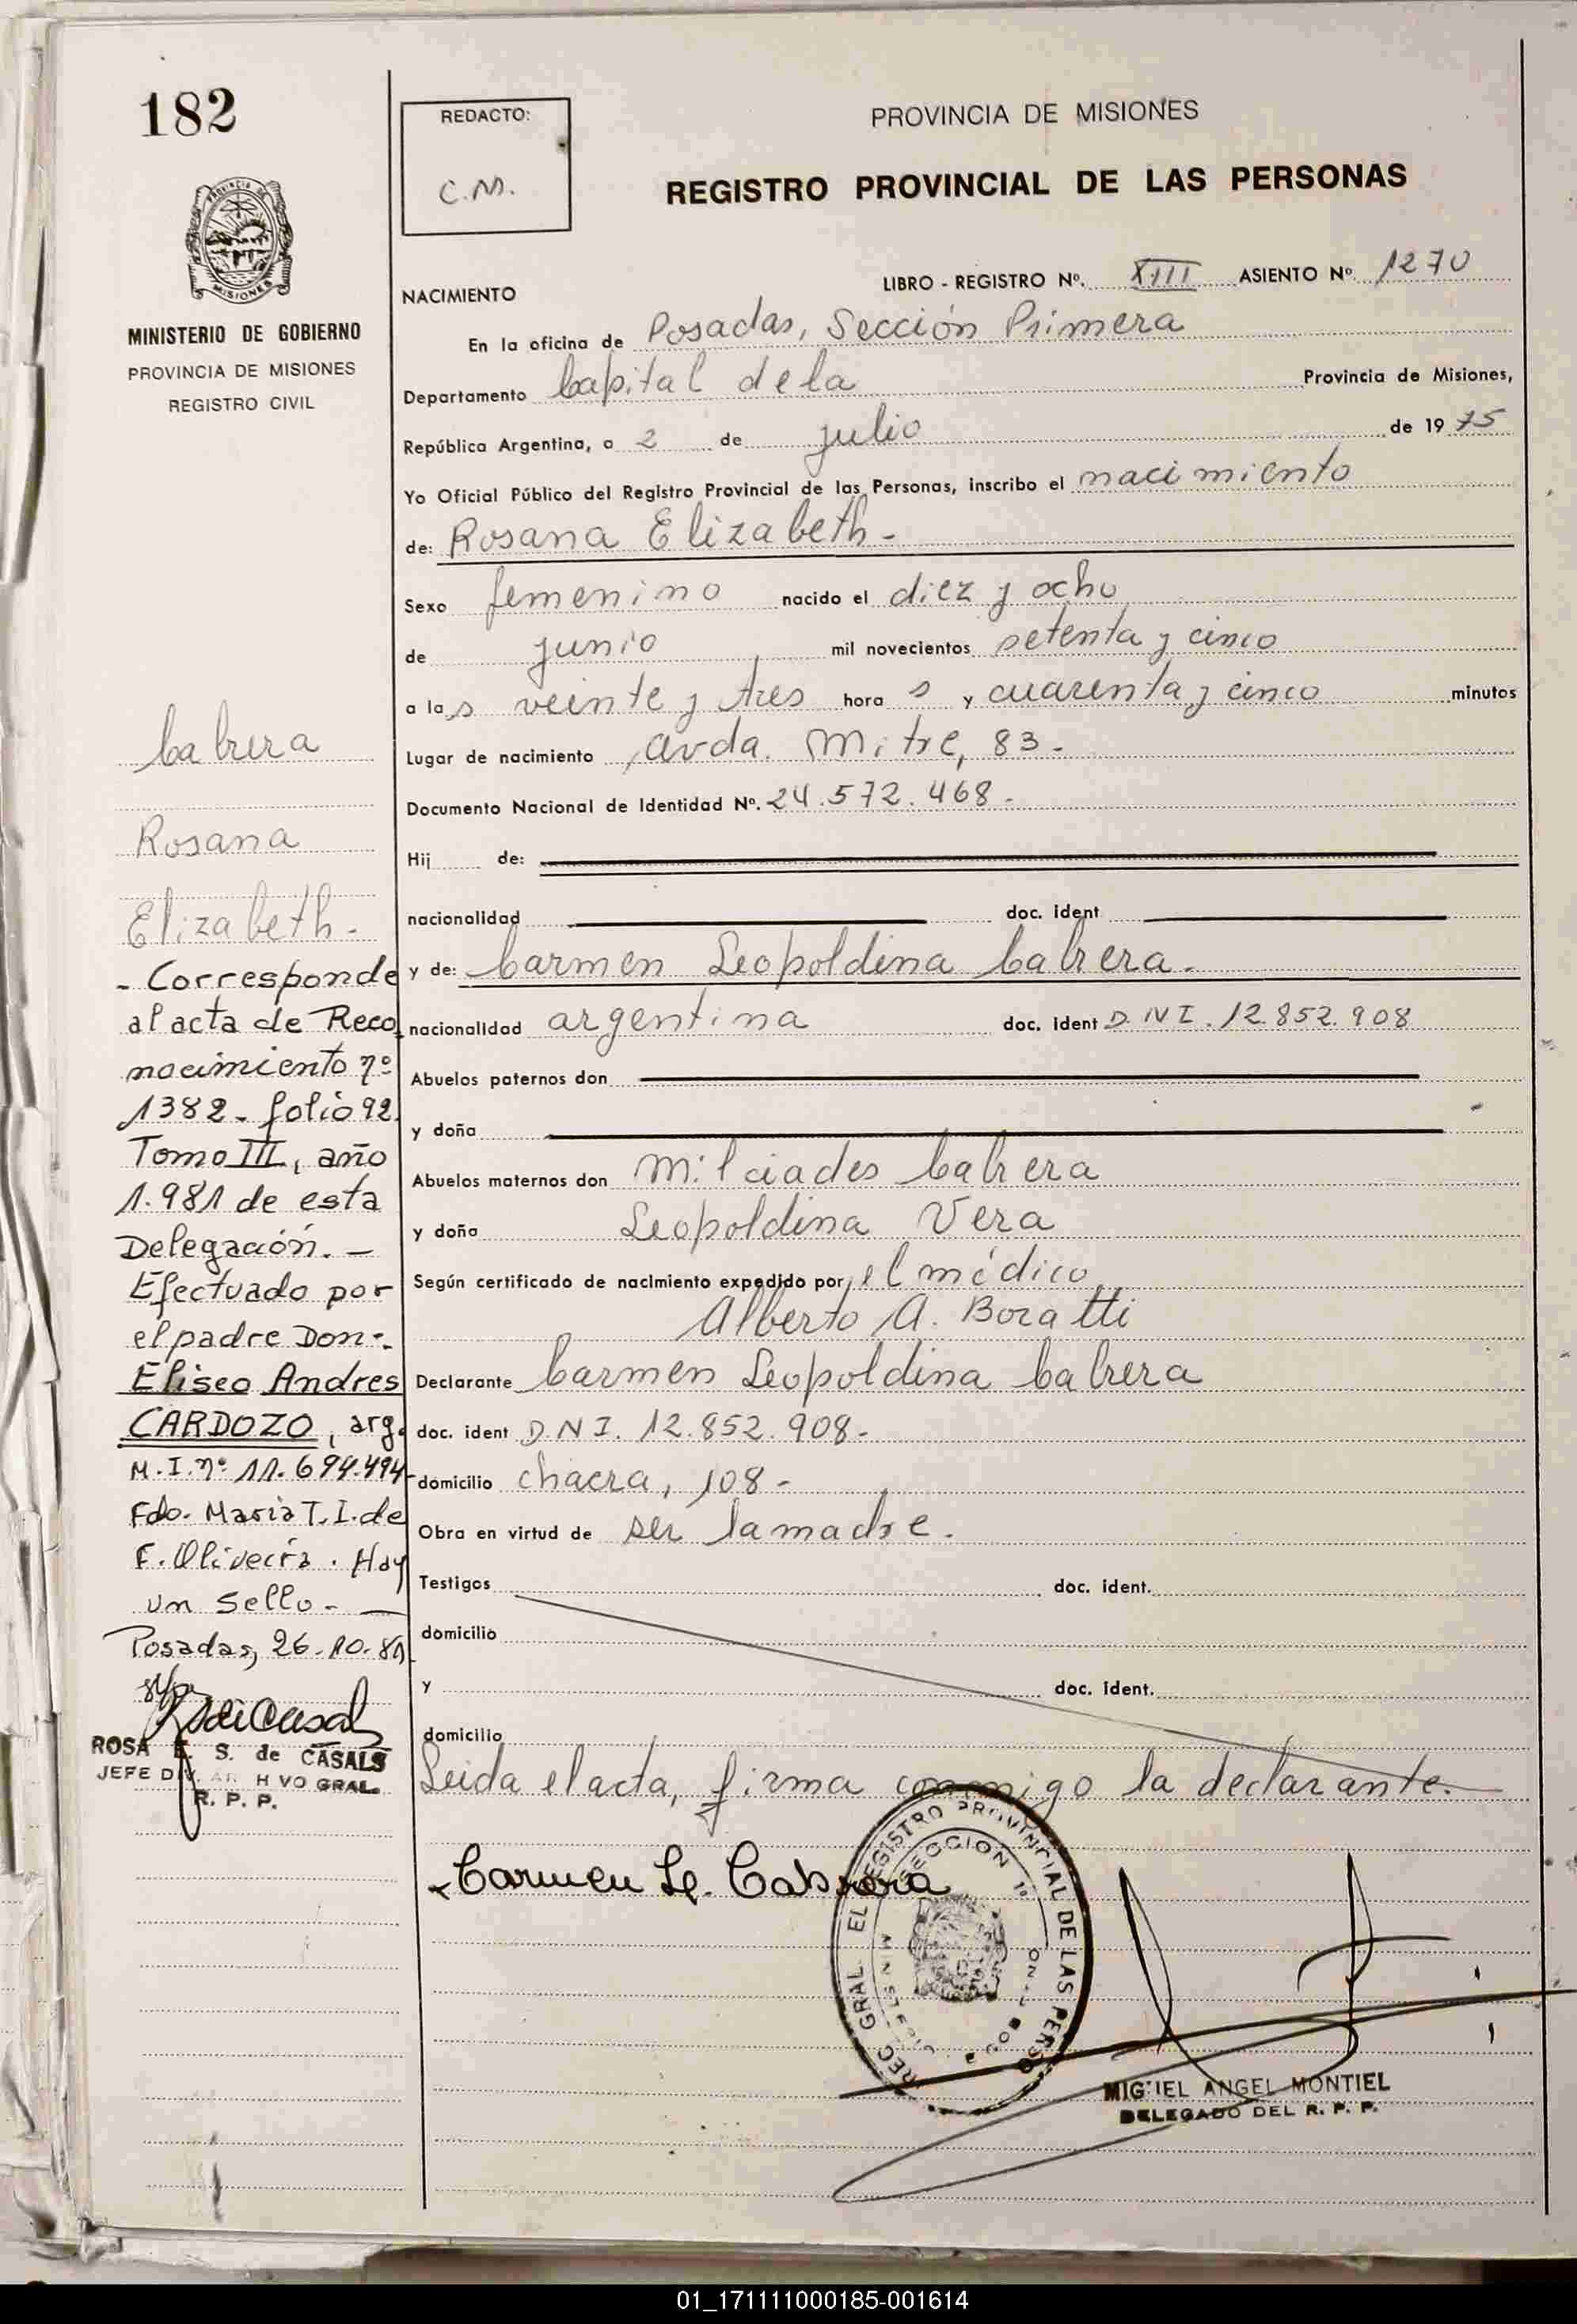 182
PROVINCIA DE
MISIONES
MINISTERIO DE GOBIERNO
PROVINCIA DE MISIONES
REGISTRO CIVIL
Cabrera
Rosana
Elizabeth.-
- Corresponde
al acta de Reco
nocimiento nº
1382- folio 92.
Tomo III, año
1.981 de esta
Delegación.-
Efectuado por
el padre Don:-
Eliseo Andres
CARDOZO, arg.
M.I.nº 11.694.494-
Fdo. Maria T. I. de
F. Oliveira. Hay
un sello.-
Posadas, 26-10-81
ROSA E. S. de CASALS
JEFE DIV. AR H VO GRAL.
R. P. P.
REDACTO:
C.M.
PROVINCIA DE MISIONES
REGISTRO PROVINCIAL DE LAS PERSONAS
LIBRO - REGISTRO Nº. XIII ASIENTO Nº 1270
NACIMIENTO
En la oficina de Posadas, Sección Primera
Departamento Capital de la Provincia de Misiones,
República Argentina, a 2 de julio de 1975
Yo Oficial Público del Registro Provincial de las Personas, inscribo el nacimiento
de: Rosana Elizabeth-
Sexo femenino nacido el diez y ocho
de junio mil novecientos setenta y cinco
a las veinte y tres horas y cuarenta y cinco minutos
Lugar de nacimiento, avda. Mitre, 83-
Documento Nacional de Identidad Nº. 24.572.468-
Hij de:
nacionalidad doc. ident
y de: Carmen Leopoldina Cabrera.-
nacionalidad argentina doc. ident D.N.I. 12.852.908
Abuelos paternos don
y doña
Abuelos maternos don Milciades Cabrera
y doña Leopoldina Vera
Según certificado de nacimiento expedido por el médico
Alberto A. Boratti
Declarante Carmen Leopoldina Cabrera
doc. ident D.N.I. 12.852.908-
domicilio chacra, 108-
Obra en virtud de ser la madre.
Testigos doc. ident.
domicilio
y doc. ident.
domicilio
Leida el acta, firma conmigo la declarante.
Carmen L. Cabrera
REG. GRAL. EL REGISTRO PROVINCIAL DE LAS PERSO
SECCION 1ª
MIGUEL ANGEL MONTIEL
DELEGADO DEL R. P. P.
01_171111000185-001614